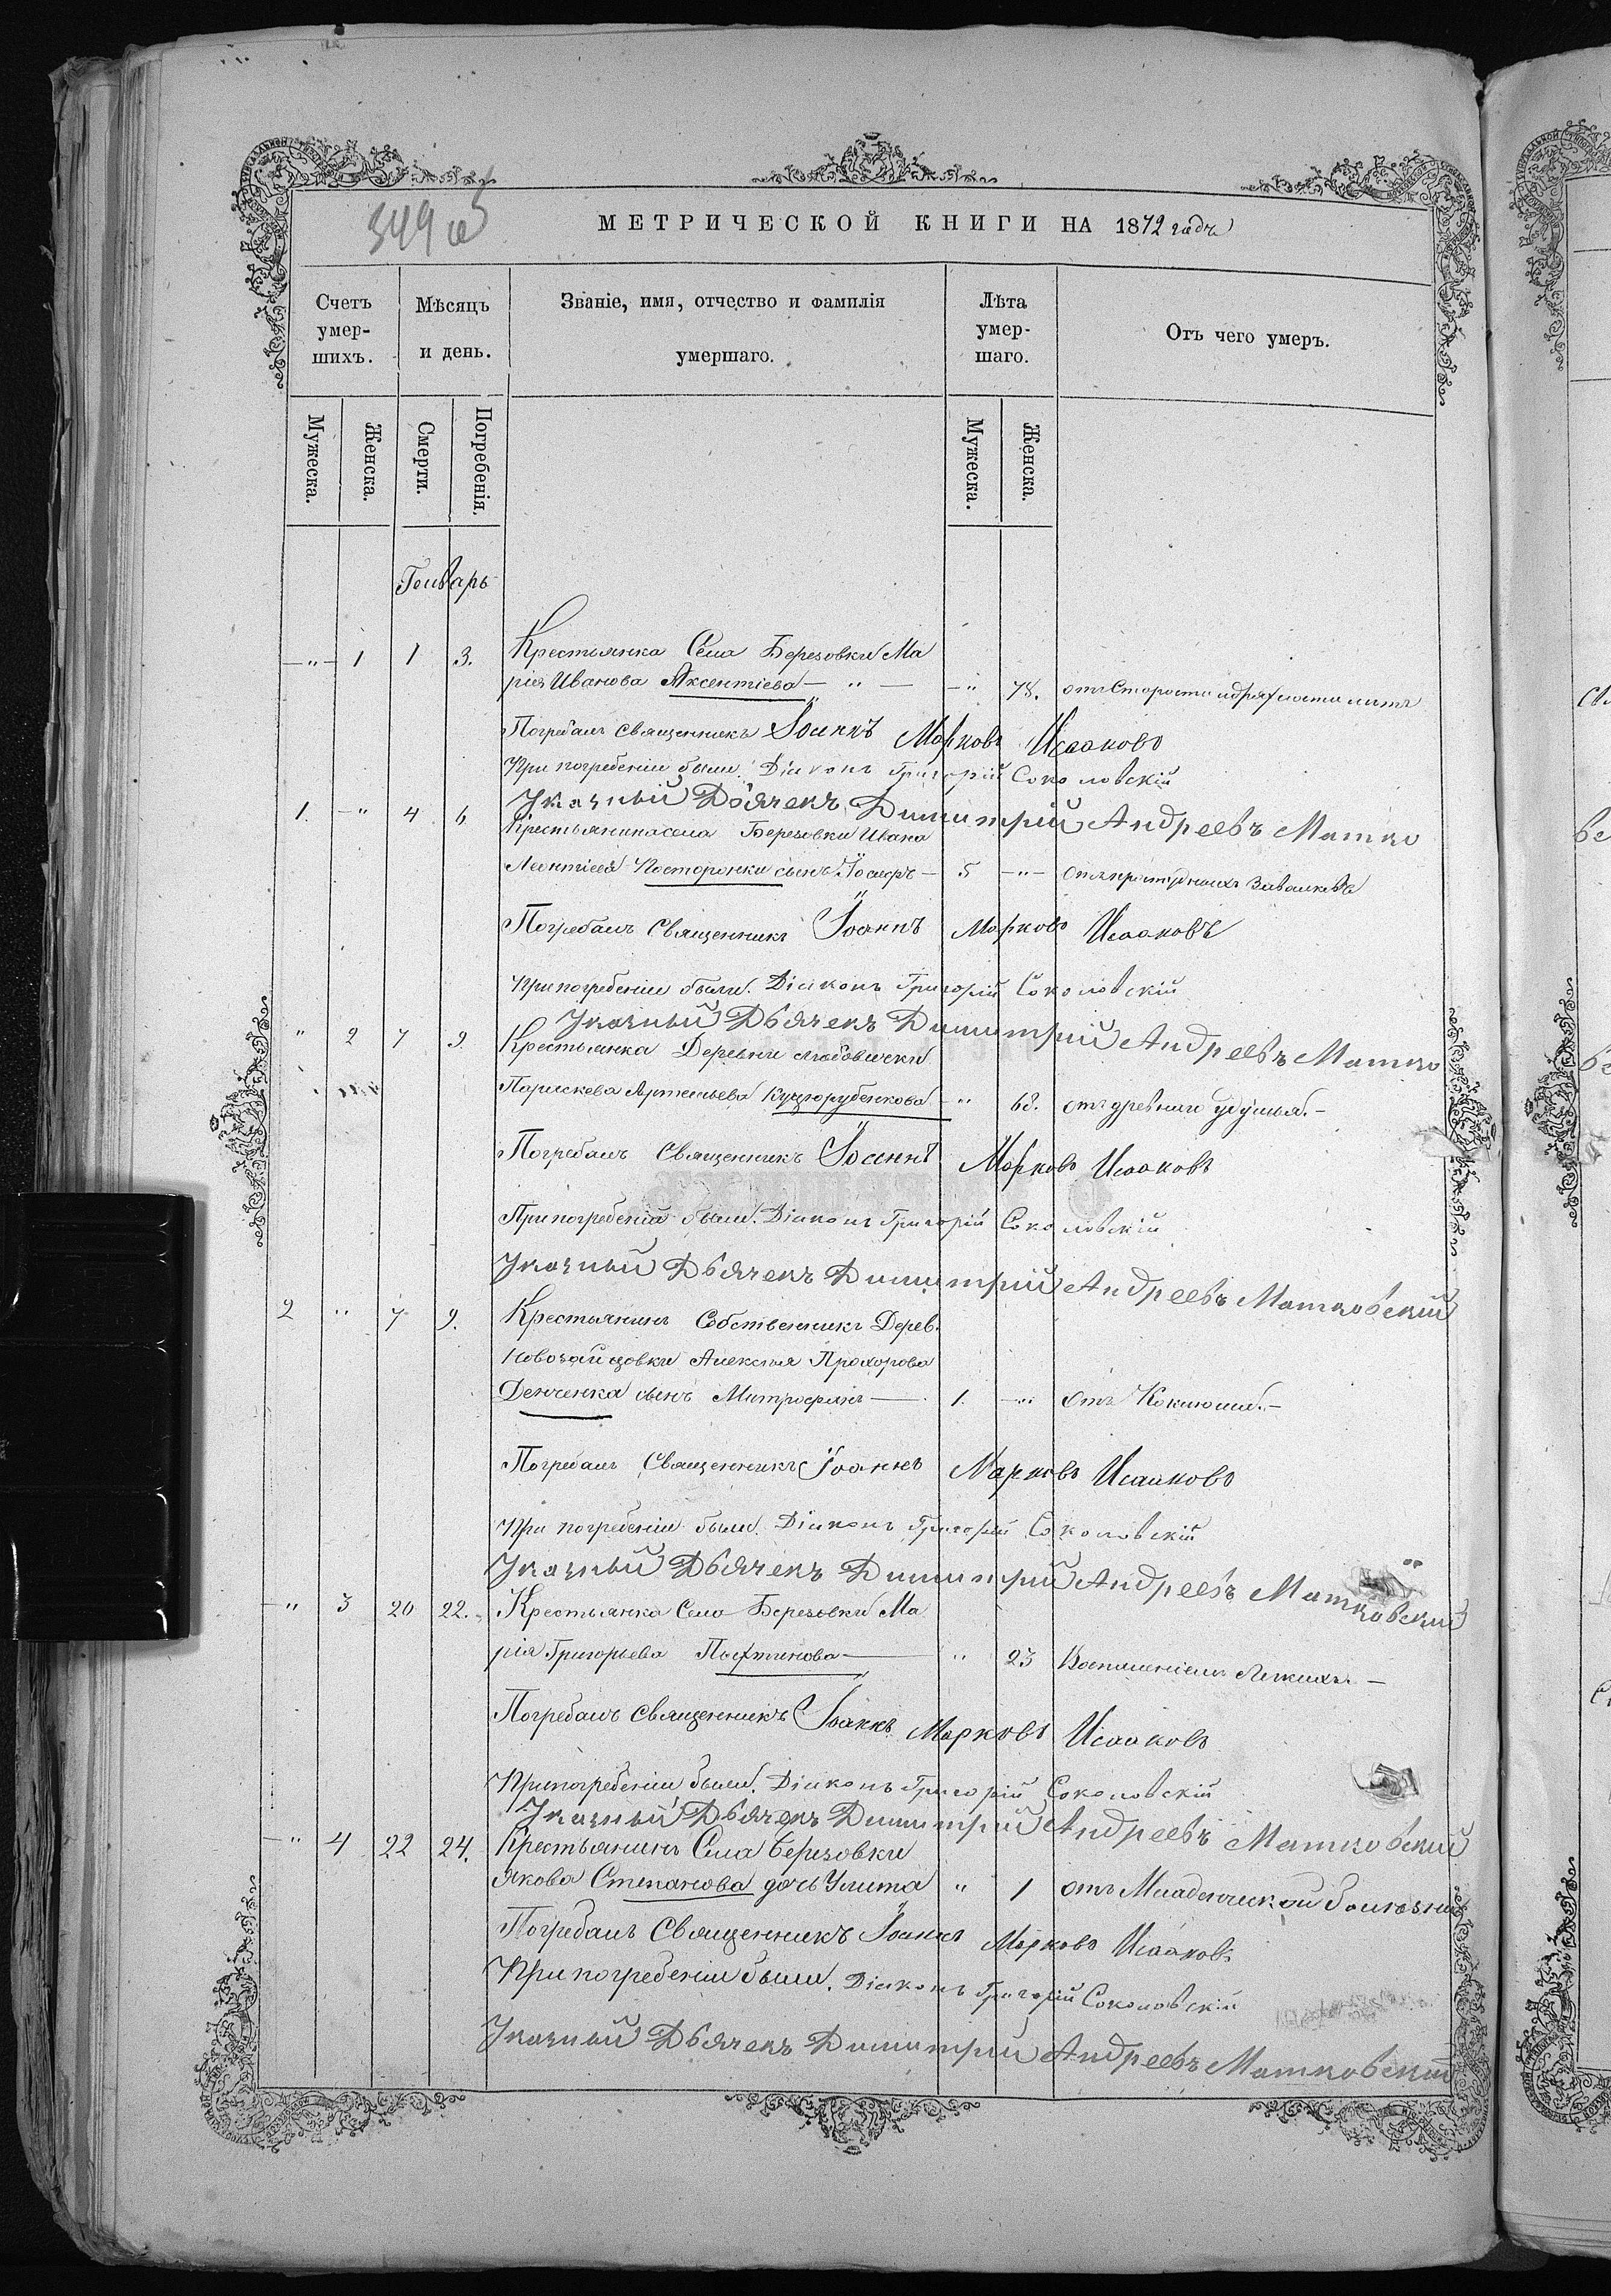 349 об
МЕТРИЧЕСКОЙ КНИГИ НА 1872 годъ
Счетъ умер-шихъ.
Мѣсяцъ и день.
Званіе, имя, отчество и фамилія умершаго.
Лѣта умер-шаго.
Отъ чего умеръ.
Мужеска. Женска. Смерти. Погребенія. Мужеска. Женска.
Генварь
-"- 1 1 3. Крестьянка Села Березовки Ма
рія Иванова Аксентіева - " - -" 78. отъ Старости
Погребалъ Священникъ Іоаннъ Марковъ Исааковъ
При погребеніи были: Діаконъ Григорій Соколовскій
Указный Дьячекъ Димитрій Андреевъ Матко
1. -" 4 6 Крестьянина села Березовки Ивана
ЛеонтіеваНосторонки сынъ Іосифъ - 5 -"-
Погребалъ Священникъ Іоаннъ Марковъ Исааковъ
При погребеніи были: Діаконъ Григорій Соколовскій
Указный Дьячекъ Димитрій Андреевъ Матко
" 2 7 9 Крестьянка Деревни
Параскева Артемьева -" 68. отъ удушья. -
Погребалъ Священникъ Іоаннъ Марковъ Исааковъ
При погребеніи были: Діаконъ Григорій Соколовскій
Указный Дьячекъ Димитрій Андреевъ Матковскій
2 " 7 9. Крестьянинъ Собственникъ Дерев.
Алексѣя Прохорова
Демченка сынъ Митрофанъ - 1. -" отъ Коклюша. -
Погребалъ Священникъ Іоаннъ Марковъ Исааковъ
При погребеніи были: Діаконъ Григорій Соколовскій
Указный Дьячекъ Димитрій Андреевъ Матковскій
-" 3 20 22. Крестьянка Села Березовки Ма
рія Григорьева - " 23 Воспаленіемъ Легкихъ. -
Погребалъ Священникъ Іоаннъ Марковъ Исааковъ
При погребеніи были: Діаконъ Григорій Соколовскій
Указный Дьячекъ Димитрій Андреевъ Матковскій
-" 4 22 24. Крестьянинъ Села Березовки
Якова Степанова дочь Улита " 1 отъ Младенческой болѣзни
Погребалъ Священникъ Іоаннъ Марковъ Исааковъ
При погребеніи были. Діаконъ Григорій Соколовскій
Указный Дьячекъ Димитрій Андреевъ Матковскій